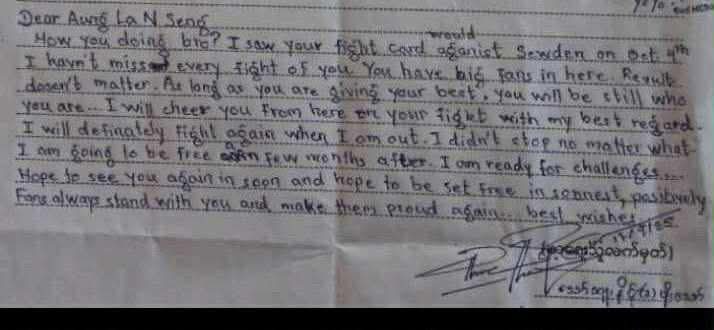 Dear Aung La N Seng
would
How you doing bro? I saw your fight card aganist Sewden on Oct 4th
I havn't miss every fight of you You have big fans in here. Result
dosen't matter. As long as you are giving your best, you will be still who
you are.. I will cheer you from here on your fight with my best regard.
I will definately fight again when I am out. I didn't stop no matter what
I am going to be free in few months after. I am ready for challenges....
Hope to see you again in soon and hope to be set free in soonest, positively
Fans always stand with you and make them proud again... best wishes